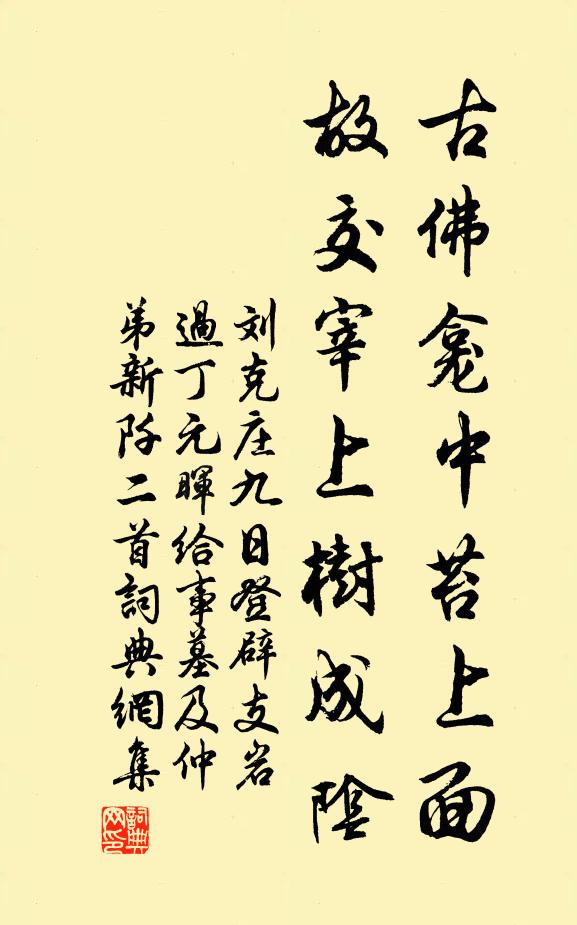 古佛龛中苔上面
故交宰上樹成陰
刘克庄九日登辟支岩
過丁元暉给事墓及仲
弟新阡二首詞典網集
詞典网印